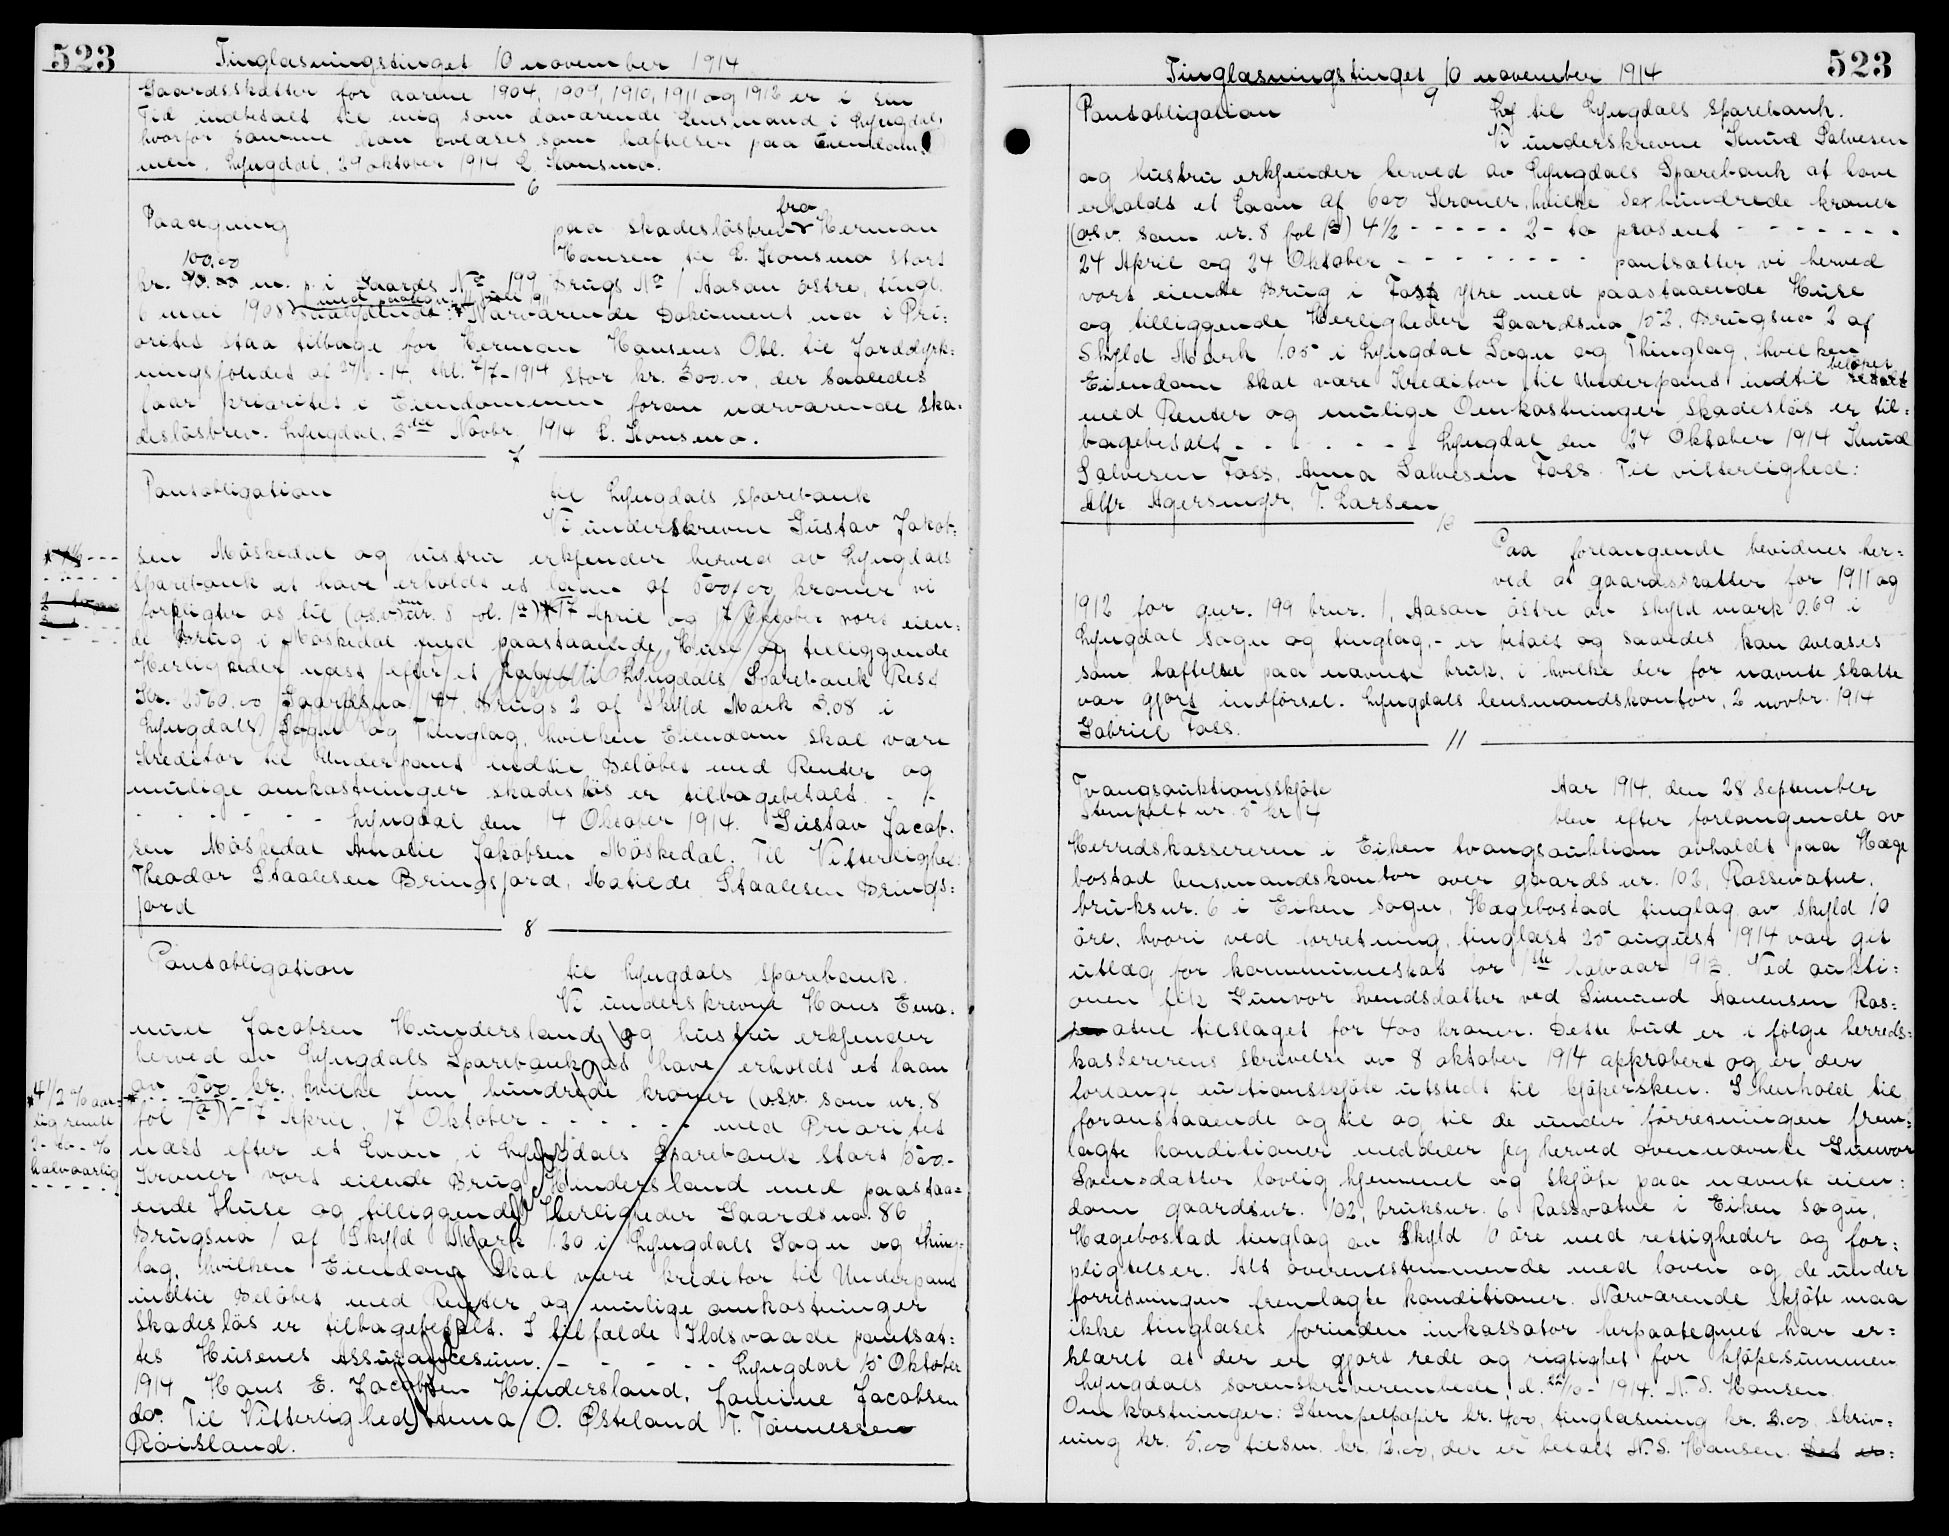 523
Tinglæsningstinget 10 november 1914
Gaardsskatter for aarene 1904, 1909, 1910, 1911 og 1912 er i sin
Tid indbetalt til mig som daværende Lensmand i Lyngdal,
hvorfor samme kan avlæses som hæftelser paa Eiendom-
men. Lyngdal, 29 oktober 1914 L. Konsmo.
6
Paategning
paa skadesløsbrev fra Herman
Hansen til L. Konsmo stort
kr. 100.00 m. p. i Gaards No 199 Brugs No 1 Aasan østre, tingl.
6 mai 1908 Nærværende Dokument maa i Pri:
oritet staa tilbage for Herman Hansens Obl. til Jorddyrk:
ningsfondet af - 14, thl. 7/7-1914 stor kr. 300.00, der saaledes
faar prioritet i Eiendommen foran nærværende ska:
desløsbrev. Lyngdal, 3die Novbr. 1914 L. Konsmo.
7
Pantobligation
til Lyngdals sparebank
Vi underskrevne Gustav Jakob:
sen Møskedal og hustru erkjender herved av Lyngdals
Sparebank at have erholdt et laan af 500,00 kroner vi
forpligter os til (o.s.v. som nr. 8 fol. 1a) 17 April og 17 Oktober vort eien:
de Brug i Møskedal med paastaaende Huse og tilliggende
Herligheder næst efter et til Lyngdals Sparebank Rest
Kr. 2560.00 Gaardsno Brugs 2 af Skyld Mark 3,08 i
Lyngdals Sogn og Tinglag, hvilken Eiendom skal være
Kreditor til Underpant indtil Beløbet med Renter og
mulige omkostninger skadesløs er tilbagebetalt. - -
- - - - - - Lyngdal den 14 Oktober 1914. Gustav Jacob-
sen Møskedal Amalie Jakobsen Møskedal. Til Vitterlighed:
Theodor Staalesen Bringsjord, Matilde Staalesen Brings:
jord
8
Pantobligation
til Lyngdals sparebank.
Vi underskrevne Hans Ema-
nuel Jacobsen Hundersland og hustru erkjender
herved av Lyngdals Sparebank at have erholdt et laan
av 500 kr. hvilke fem hundrede kroner (o.s.v. som nr. 8
*4 1/2 % aar-
lig rente
2 - to - %
halvaarlig
fol 1a) 17 April, 17 Oktober - - - - - - med Prioritet
næst efter et Laan i Lyngdals Sparebank stort 500.-
Kroner vort eiende Brug Hindersland med paastaa=
ende Huse og tilliggende Herligheder Gaardsno. 86
Brugsno 1 af Skyld Mark 1.20 i Lyngdals Sogn og Thing-
lag, hvilken Eiendom skal være kreditor til Underpant
indtil Beløbet med Renter og mulige omkostninger
skadesløs er tilbagebetalt. I tilfælde Ildsvaade pantsæt:
tes Husenes Assurancesum. - - - - - Lyngdal 15 Oktober
1914 Hans E. Jacobsen Hindersland, Jacobsen
do. Til Vitterlighed: Anna O. Østeland T. Tønnessen
Røisland.
523
Tinglæsningstinget 10 november 1914
9
Pantobligation
til Lyngdals Sparebank.
Vi underskrevne Knud Salvesen
og hustru erkjender herved av Lyngdals Sparebank at have
erholdt et Laan af 600 Kroner, hvilke Sexhundrede kroner
(o.s.v. som nr. 8 fol 1a) 4 1/2 - - - - - 2 - to prosent - - - - - - -
24 April og 24 Oktober - - - - - - - - pantsætter vi herved
vort eiende Brug i Foss ytre med paastaaende Huse
og tilliggende Herligheder Gaardsno 152, Brugsno 2 af
Skyld Mark 1.05 i Lyngdal Sogn og Thinglag, hvilken
Eiendom skal være Kreditor til Underpant indtil beløpet
med Renter og mulige Omkostninger skadesløs er til:
bagebetalt - - - - - - - Lyngdal den 24 Oktober 1914 Knud
Salvesen Foss, Anna Salvesen Foss. Til vitterlighed:
Alfr. Agersingjr, T. Larsen
10
Paa forlangende bevidnes her:
ved at gaardsskatter for 1911 og
1912 for gnr. 199 brnr. 1, Aasan østre av skyld mark 0.69 i
Lyngdal sogn og tinglag, - er betalt og saaledes kan avlæses
som hæftelse paa nævnte bruk, i hvilke der for nævnte skatte
var gjort indførsel. Lyngdals lensmandskontor, 2 novbr. 1914
Gabriel Foss.
11
Tvangsauktionsskjøte
Stemplet nr. 5 kr 4
Aar 1914, den 28 september
blev efter forlangende av
Herredskassereren i Eiken tvangsauktion avholdt paa Hæge
bostad lensmandskontor over gaards nr. 102, Rossevatne,
bruksnr. 6 i Eiken sogn, Hægebostad tinglag av skyld 10
øre, hvori ved forretning, tinglæst 25 august 1914 var git
utlæg for kommuneskat for 1ste halvaar 1913. Ved aukti:
onen fik Gunvor Svendsdatter ved Simund Ros:
vatne tilslaget for 400 kroner. Dette bud er i følge herreds:
kassererens skrivelse av 8 oktober 1914 approbert og er der
forlangt auktionsskjøte utstedt til kjøpersken. I henhold til
foranstaaende og til og til de under forretningen frem:
lagte konditioner meddeler jeg herved ovennævnte Gunvor
Svensdatter lovlig hjemmel og skjøte paa nævnte eien:
dom gaardsnr. 102, bruksnr. 6 Rossvatne i Eiken sogn,
Hægebostad tinglag av Skyld 10 øre med rettigheder og for:
pligtelser. Alt overensstemmende med loven og de under
forretningen fremlagte konditioner. Nærværende skjøte maa
ikke tinglæses forinden inkassator herpaategnet har er:
klæret at der er gjort rede og rigtighet for kjøpesummen
Lyngdals sorenskriverembede, d. 22/10 - 1914. N. S. Hansen.
Omkostninger: Stempelpapir kr. 4.00, tinglæsning kr. 3.00, skriv:
ning kr. 5.00 tilsm. kr. 12.00, der er betalt N. S. Hansen. Det er: